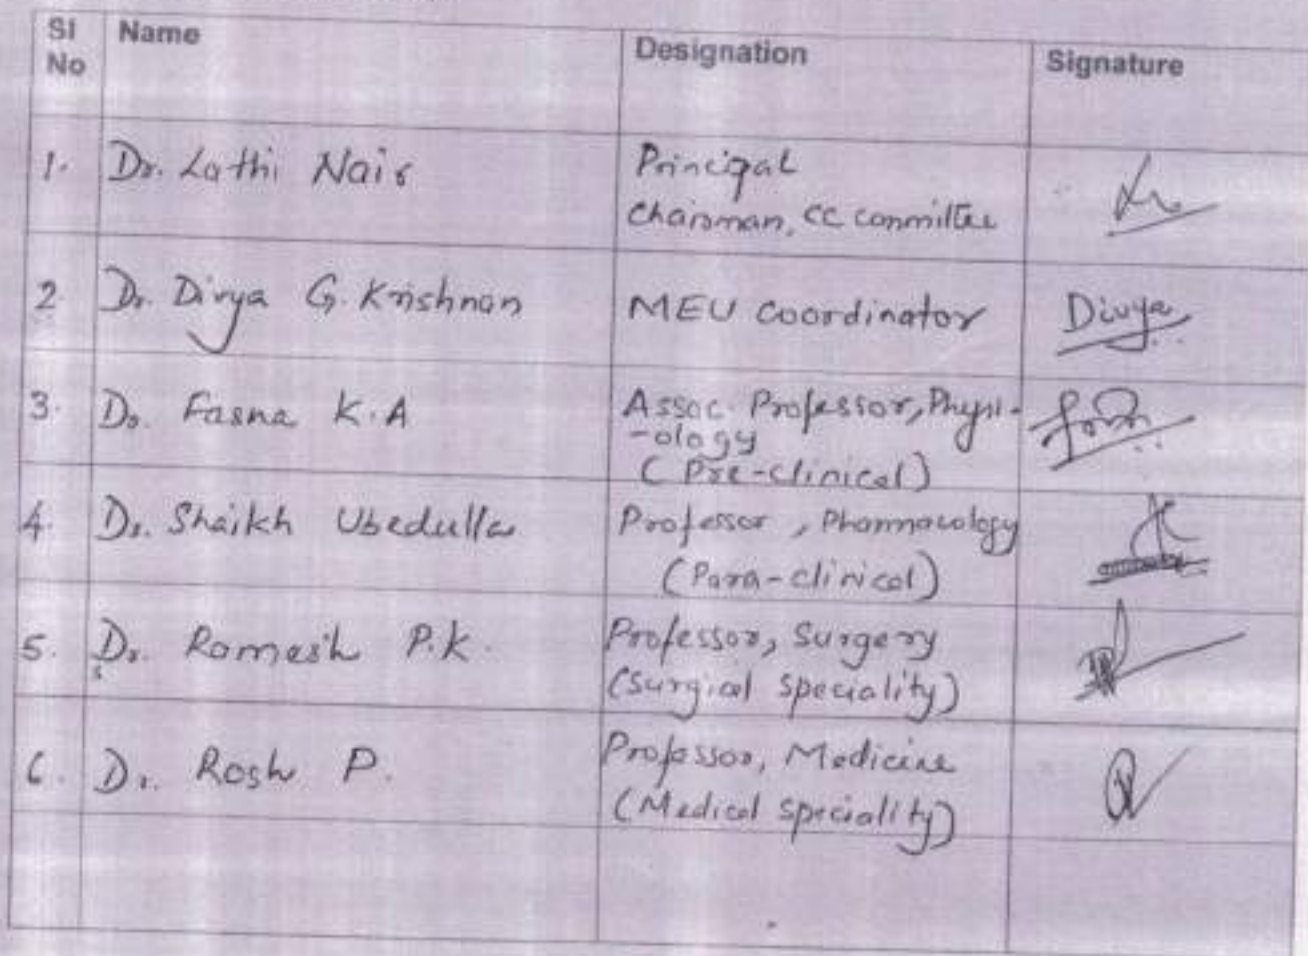 Sl No Name Designation Signature
1. Dr. Lathi Nair Principal
Chairman, CC committee
2. Dr. Divya G. Krishnan MEU Coordinator Divya
3. Dr. Fasna K.A Assoc. Professor, Physi-
-ology
(Pre-clinical)
4. Dr. Shaikh Ubedulla Professor, Pharmacology
(Para-clinical)
5. Dr. Ramesh P.K. Professor, Surgery
(Surgical Speciality)
6. Dr. P. Professor, Medicine
(Medical Speciality)